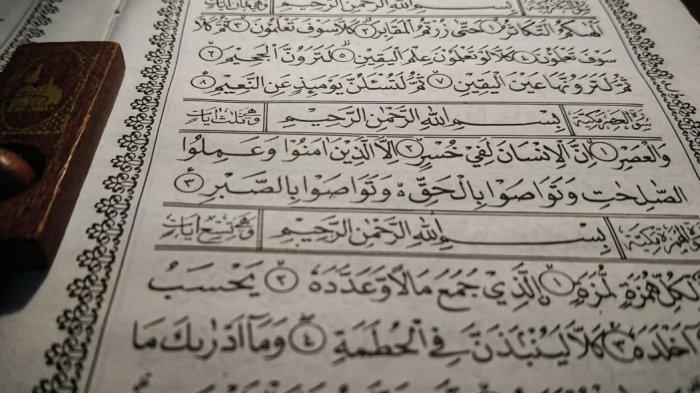 بِسْمِ اللّٰهِ الرَّحْمٰنِ الرَّحِيْمِ
اَلْهٰىكُمُ التَّكَاثُرُ ۙ ١ حَتّٰى زُرْتُمُ الْمَقَابِرَ ۗ ٢ كَلَّا سَوْفَ تَعْلَمُوْنَ ۙ ٣ ثُمَّ كَلَّا
سَوْفَ تَعْلَمُوْنَ ۗ ٤ كَلَّا لَوْ تَعْلَمُوْنَ عِلْمَ الْيَقِيْنِ ۗ ٥ لَتَرَوُنَّ الْجَحِيْمَ ۙ ٦
ثُمَّ لَتَرَوُنَّهَا عَيْنَ الْيَقِيْنِ ۙ ٧ ثُمَّ لَتُسْـَٔلُنَّ يَوْمَىِٕذٍ عَنِ النَّعِيْمِ ٨
بِسْمِ اللّٰهِ الرَّحْمٰنِ الرَّحِيْمِ وَهِيَ ثَلٰثُ اٰيَاتٍ
وَالْعَصْرِ ۙ ١ اِنَّ الْاِنْسَانَ لَفِيْ خُسْرٍ ۙ ٢ اِلَّا الَّذِيْنَ اٰمَنُوْا وَعَمِلُوا
الصّٰلِحٰتِ وَتَوَاصَوْا بِالْحَقِّ ەۙ وَتَوَاصَوْا بِالصَّبْرِ ٣
بِسْمِ اللّٰهِ الرَّحْمٰنِ الرَّحِيْمِ وَهِيَ تِسْعُ اٰيَاتٍ
لِكُلِّ هُمَزَةٍ لُّمَزَةٍ ۙ ١ الَّذِيْ جَمَعَ مَالًا وَّعَدَّدَهٗ ۙ ٢ يَحْسَبُ
اَخْلَدَهٗ ۚ ٣ كَلَّا لَيُنْۢبَذَنَّ فِى الْحُطَمَةِ ۖ ٤ وَمَآ اَدْرٰىكَ مَا